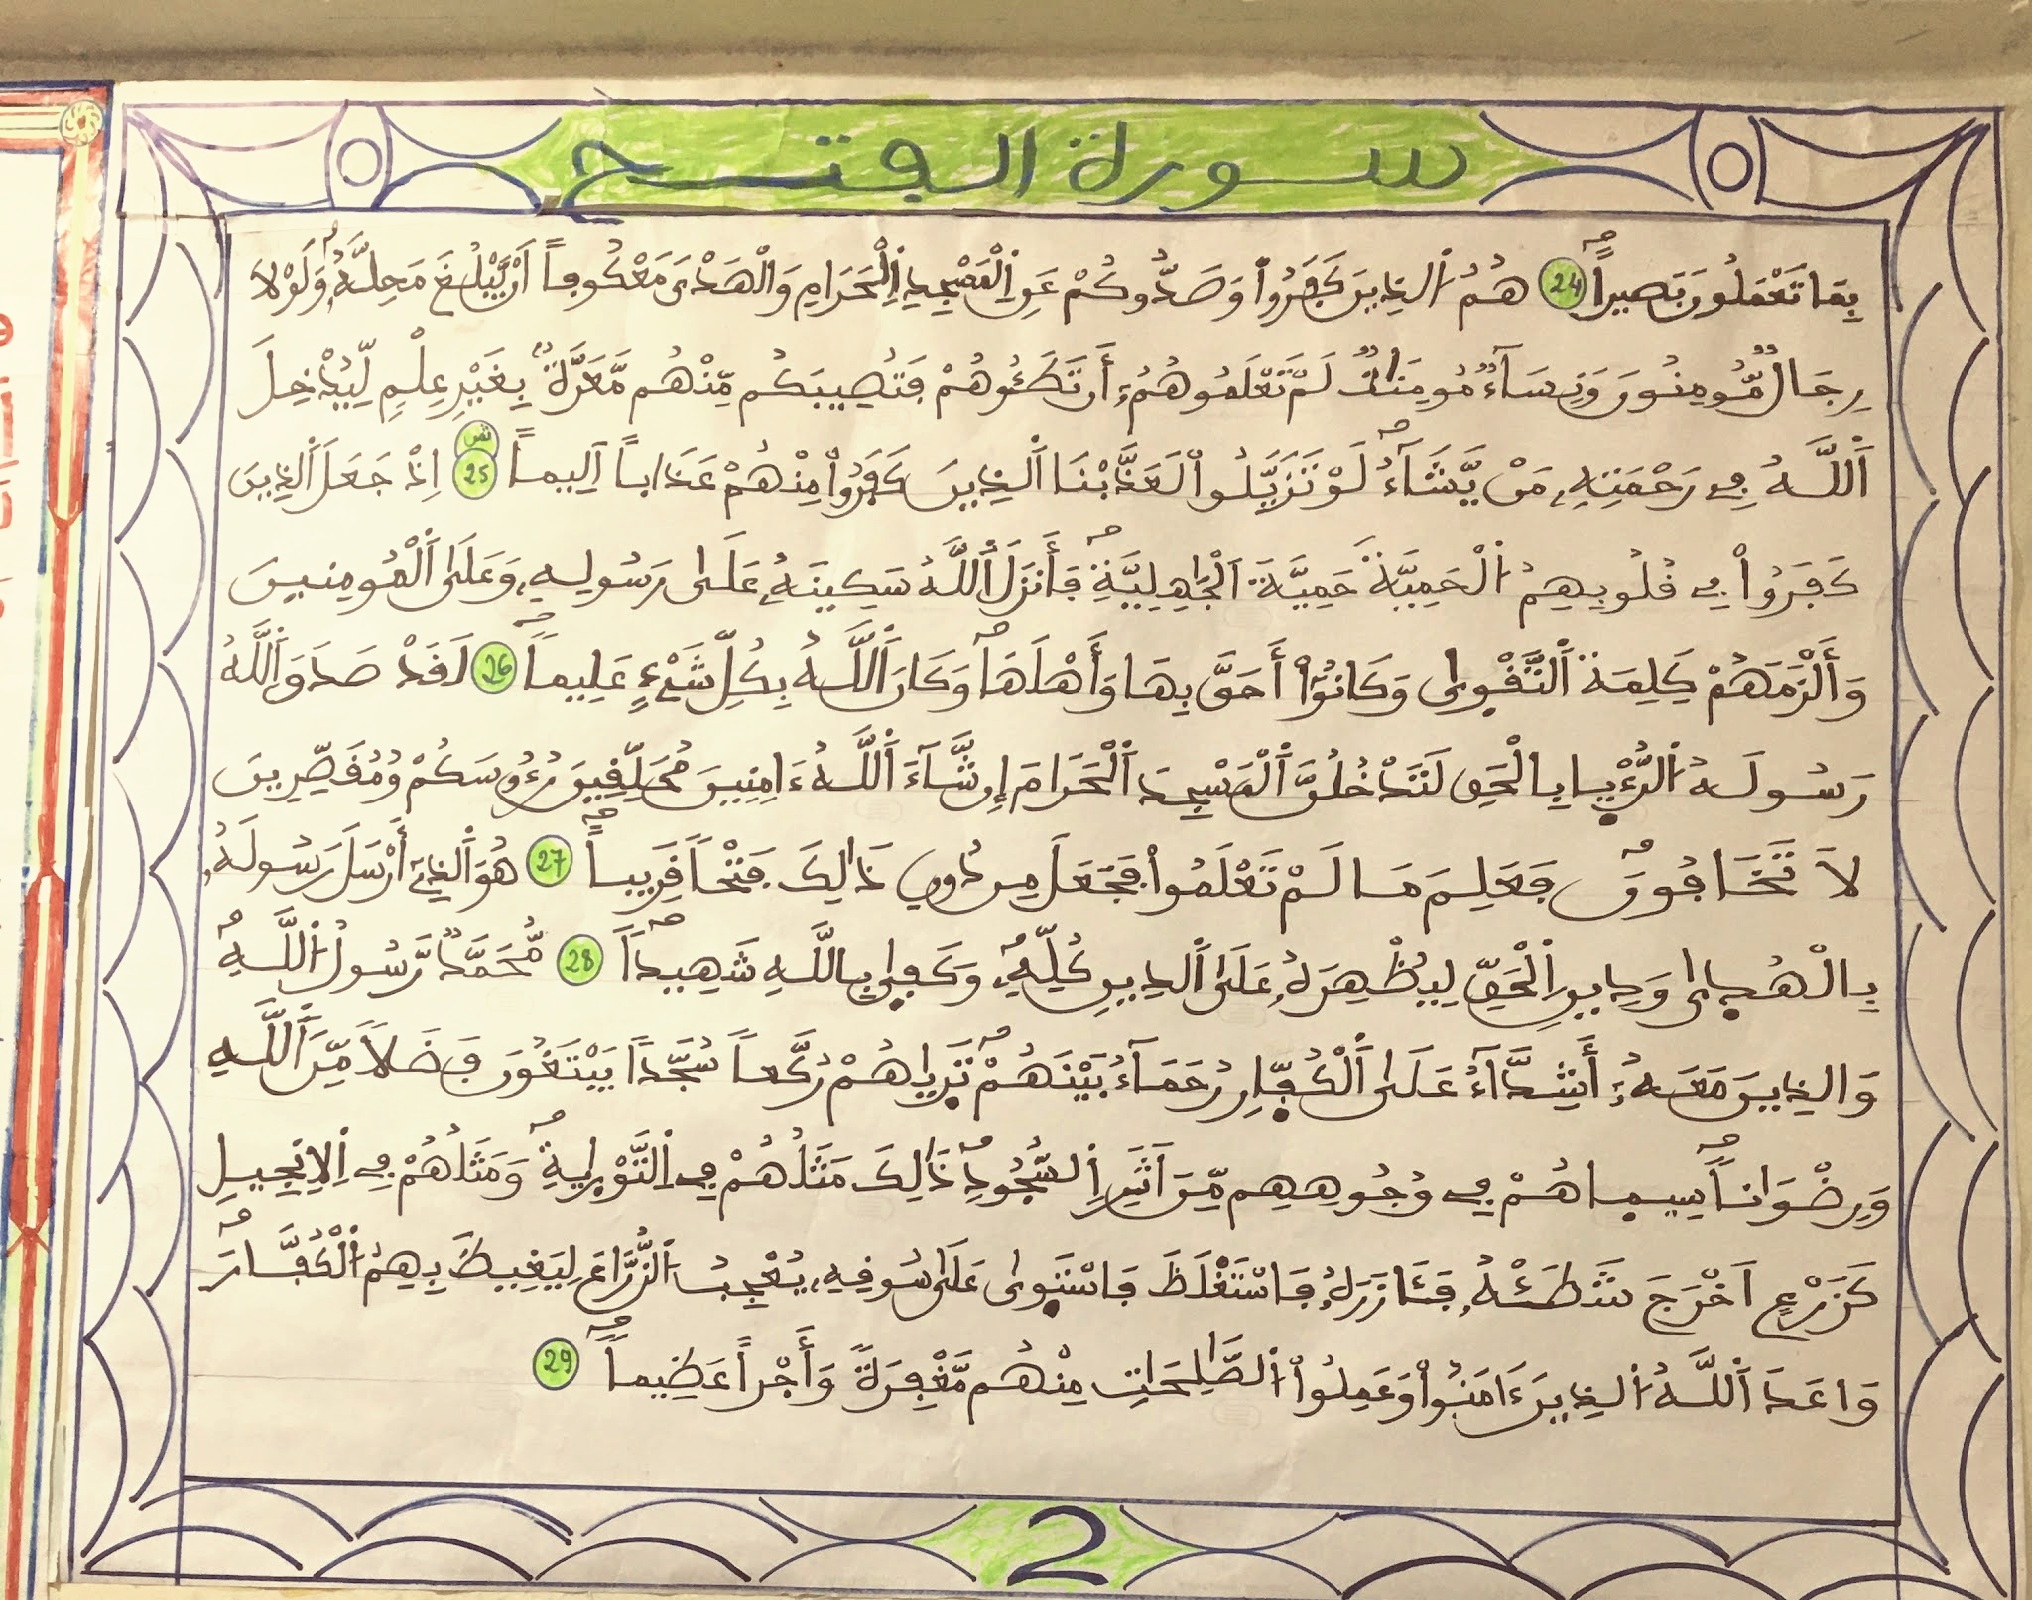 سورة الفتح
بِمَا تَعْمَلُونَ بَصِيراً 24 هُمُ اُلذِينَ كَفَرُواْ وَصَدُّوكُمْ عَنِ اِلْمَسْجِدِ اِلْحَرَامِ وَالْهَدْيَ مَعْكُوفاً اَنْ يَّبْلُغَ مَحِلَّهُۥ وَلَوْلَا
رِجَالٌ مُّومِنُونَ وَنِسَآءٌ مُّومِنَٰتٌ لَّمْ تَعْلَمُوهُمُۥٓ أَن تَطَـُٔوهُمْ فَتُصِيبَكُم مِّنْهُم مَّعَرَّةٌۢ بِغَيْرِ عِلْمٍ لِّيُدْخِلَ
اَ۬للَّهُ فِے رَحْمَتِهِۦ مَنْ يَّشَآءُ لَوْ تَزَيَّلُواْ لَعَذَّبْنَا اَ۬لذِينَ كَفَرُواْ مِنْهُمْ عَذَاباً اَلِيماً 25 ثمن اِذْ جَعَلَ اَ۬لذِينَ
كَفَرُواْ فِے قُلُوبِهِمُ اُ۬لْحَمِيَّةَ حَمِيَّةَ اَ۬لْجَٰهِلِيَّةِ فَأَنزَلَ اَ۬للَّهُ سَكِينَتَهُۥ عَلَىٰ رَسُولِهِۦ وَعَلَى اَ۬لْمُومِنِينَ
وَأَلْزَمَهُمْ كَلِمَةَ اَ۬لتَّقْوٜىٰ وَكَانُوٓاْ أَحَقَّ بِهَا وَأَهْلَهَا وَكَانَ اَ۬للَّهُ بِكُلِّ شَےْءٍ عَلِيماً 26 لَقَدْ صَدَقَ اَ۬للَّهُ
رَسُولَهُ اُ۬لرُّءْيٜا بِالْحَقِّ لَتَدْخُلُنَّ اَ۬لْمَسْجِدَ اَ۬لْحَرَامَ إِن شَآءَ اَ۬للَّهُ ءَامِنِينَ مُحَلِّقِينَ رُءُوسَكُمْ وَمُقَصِّرِينَ
لَا تَخَافُونَ فَعَلِمَ مَا لَمْ تَعْلَمُواْ فَجَعَلَ مِن دُونِ ذَٰلِكَ فَتْحاً قَرِيباً 27 هُوَ اَ۬لذِےٓ أَرْسَلَ رَسُولَهُۥ
بِالْهُدٜىٰ وَدِينِ اِ۬لْحَقِّ لِيُظْهِرَهُۥ عَلَى اَ۬لدِّينِ كُلِّهِۦ وَكَفٜىٰ بِاللَّهِ شَهِيداً 28 مُّحَمَّدٌ رَّسُولُ اُ۬للَّهِ
وَالذِينَ مَعَهُۥٓ أَشِدَّآءُ عَلَى اَ۬لْكُفّٜارِ رُحَمَآءُ بَيْنَهُمْ تَرٜىٰهُمْ رُكَّعاً سُجَّداً يَبْتَغُونَ فَضْلاً مِّنَ اَ۬للَّهِ
وَرِضْوَٰناً سِيمٜاهُمْ فِے وُجُوهِهِم مِّنَ اَثَرِ اِ۬لسُّجُودِ ذَٰلِكَ مَثَلُهُمْ فِے اِ۬لتَّوْرٜىٰةِ وَمَثَلُهُمْ فِے اِ۬لِانجِيلِ
كَزَرْعٍ اَخْرَجَ شَطْـَٔهُۥ فَـَٔازَرَهُۥ فَاسْتَغْلَظَ فَاسْتَوٜىٰ عَلَىٰ سُوقِهِۦ يُعْجِبُ اُ۬لزُّرَّاعَ لِيَغِيظَ بِهِمُ اُ۬لْكُفَّارَ
وَاعَدَ اَ۬للَّهُ اُ۬لذِينَ ءَامَنُواْ وَعَمِلُواْ اُ۬لصَّٰلِحَٰتِ مِنْهُم مَّغْفِرَةً وَأَجْراً عَظِيماً 29
2